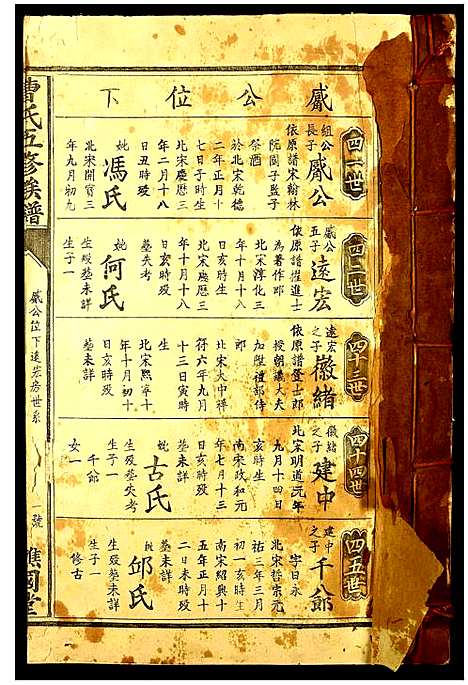 曹氏五修族譜
威公位下遠宏房世系
一號
譙國堂
威公位下
四一世
組公長子
威公
依原譜宋翰林
院國子監子
祭酒
於北宋乾德
二年正月十
七日子時生
北宋慶曆三
年二月十八
日丑時歿
妣
馮氏
北宋開寶三
年九月初九
四二世
威公五子
遠宏
依原譜擢進士
為著作郎
北宋淳化三
年十月十八
日亥時生
北宋慶曆三
年十月十八
日亥時歿
墓失考
妣
何氏
生歿墓未詳
生子一
四十三世
遠宏之子
徽緒
依原譜登士郎
授朝議大夫
加陞禮部侍
郎
北宋大中祥
符六年九月
十三日寅時
生
北宋熙寧十
年十月初十
日亥時歿
墓未詳
四十四世
徽緒之子
建中
北宋明道元年
九月十四日
亥時生
南宋政和元
年七月十三
日亥時歿
墓未詳
妣
古氏
生歿墓失考
生子一
千爺
女一
四五世
建中之子
千爺
字日永
北宋哲宗元
祐三年三月
初一亥時生
南宋紹興十
五年正月十
二日未時歿
墓未詳
妣
邱氏
生歿墓未詳
生子一
修古